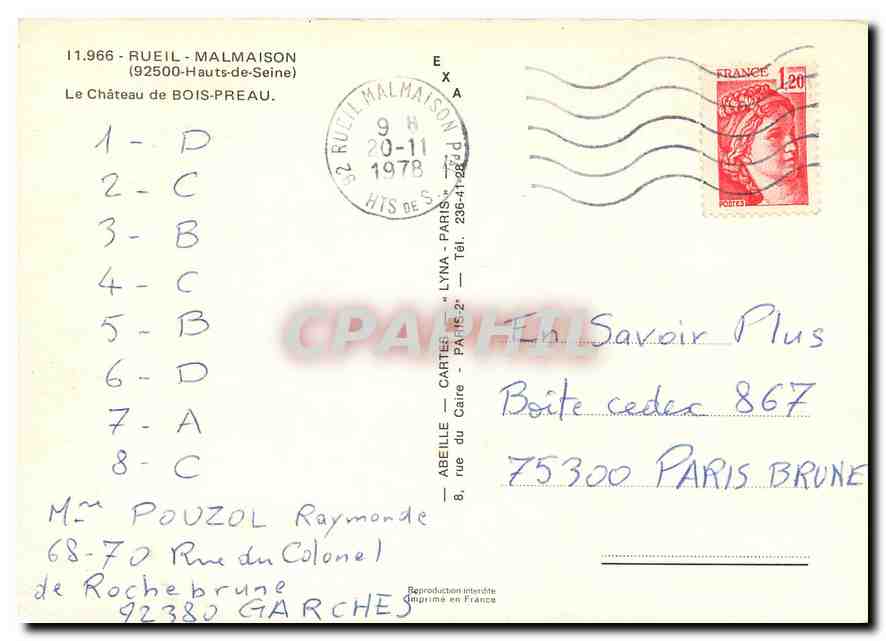 11.966 - RUEIL - MALMAISON
(92500-Hauts-de-Seine)
Le Château de BOIS-PREAU.
EXA
92 RUEIL MALMAISON PPAL
9 H
20-11
1978
HTS DE S.
FRANCE 1,20
POSTES
1 - D
2 - C
3 - B
4 - C
5 - B
6 - D
7 - A
8 - C
Mme POUZOL Raymonde
68-70 Rue du Colonel
de Rochebrune
92380 GARCHES
— ABEILLE — CARTES — " LYNA - PARIS "
8, rue du Caire - PARIS-2e — Tél. 236-41-28
CPAPHIL
En Savoir Plus
Boite cedex 867
75300 PARIS BRUNE
Reproduction interdite
Imprimé en France